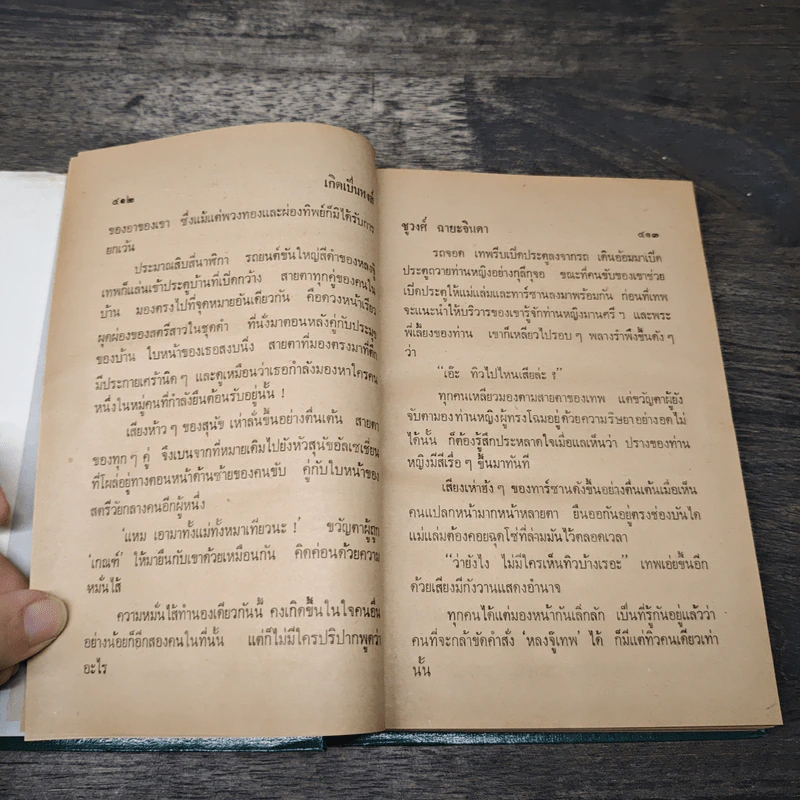 ๔๑๒ เกิดเป็นหงส์
ของอาของเขา ซึ่งแม้แต่พวงทองและผ่องทิพย์ก็มิได้รับการ
ยกเว้น
ประมาณสิบสี่นาฬิกา รถยนต์คันใหญ่สีดำของหลงจู๊
เทพก็แล่นเข้าประตูบ้านที่เปิดกว้าง สายตาทุกคู่ของคนใน
บ้าน มองตรงไปที่จุดหมายอันเดียวกัน คือดวงหน้าเรียว
ผุดผ่องของสตรีสาวในชุดดำ ที่นั่งมาตอนหลังคู่กับประมุข
ของบ้าน ใบหน้าของเธอสงบนิ่ง สายตาที่มองตรงมาที่ตึก
มีประกายเศร้านิดๆ และดูเหมือนว่าเธอกำลังมองหาใครคน
หนึ่งในหมู่คนที่กำลังยืนต้อนรับอยู่นั้น !
เสียงห้าวๆ ของสุนัข เห่าลั่นขึ้นอย่างตื่นเต้น สายตา
ของทุกๆ คู่ จึงเบนจากที่หมายเดิมไปยังหัวสุนัขอัลเซเชี่ยน
ที่โผล่อยู่ทางตอนหน้าด้านซ้ายของคนขับ คู่กับใบหน้าของ
สตรีวัยกลางคนอีกผู้หนึ่ง
‘แหม เอามาทั้งแม่ทั้งหมาเทียวนะ !’ ขวัญตาผู้ถูก
‘เกณฑ์’ ให้มายืนกับเขาด้วยเหมือนกัน คิดค่อนด้วยความ
หมั่นไส้
ความหมั่นไส้ทำนองเดียวกันนี้ คงเกิดขึ้นในใจคนอื่น
อย่างน้อยก็อีกสองคนในที่นั้น แต่ก็ไม่มีใครปริปากพูดว่า
อะไร
ชูวงศ์ ฉายะจินดา ๔๑๓
รถจอด เทพรีบเปิดประตูลงจากรถ เดินอ้อมมาเปิด
ประตูถวายท่านหญิงอย่างกุลีกุจอ ขณะที่คนขับของเขาช่วย
เปิดประตูให้แม่แล่มและทาร์ซานลงมาพร้อมกัน ก่อนที่เทพ
จะแนะนำให้บริวารของเขารู้จักท่านหญิงมานศรี ฯ และพระ
พี่เลี้ยงของท่าน เขาก็เหลียวไปรอบๆ พลางรำพึงขึ้นดังๆ
ว่า
“เอ๊ะ ทิวไปไหนเสียล่ะ ?”
ทุกคนเหลียวมองตามสายตาของเทพ แต่ขวัญตาผู้ยัง
จับตามองท่านหญิงผู้ทรงโฉมอยู่ด้วยความริษยาอย่างอดไม่
ได้นั้น ก็ต้องรู้สึกประหลาดใจเมื่อแลเห็นว่า ปรางของท่าน
หญิงมีสีเรื่อๆ ขึ้นมาทันที
เสียงเห่าฮ้งๆ ของทาร์ซานดังขึ้นอย่างตื่นเต้นเมื่อเห็น
คนแปลกหน้ามากหน้าหลายตา ยืนออกันอยู่ตรงช่องบันได
แม่แล่มต้องคอยฉุดโซ่ที่ล่ามมันไว้ตลอดเวลา
“ว่ายังไง ไม่มีใครเห็นทิวบ้างเรอะ” เทพเอ่ยขึ้นอีก
ด้วยเสียงมีกังวานแสดงอำนาจ
ทุกคนได้แต่มองหน้ากันเลิ่กลั่ก เป็นที่รู้กันอยู่แล้วว่า
คนที่จะกล้าขัดคำสั่ง ‘หลงจู๊เทพ’ ได้ ก็มีแต่ทิวคนเดียวเท่า
นั้น